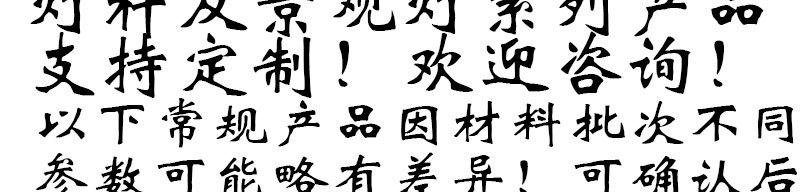 灯杆及景观灯系列产品
支持定制！欢迎咨询！
以下常规产品因材料批次不同
参数可能略有差异！可确认后